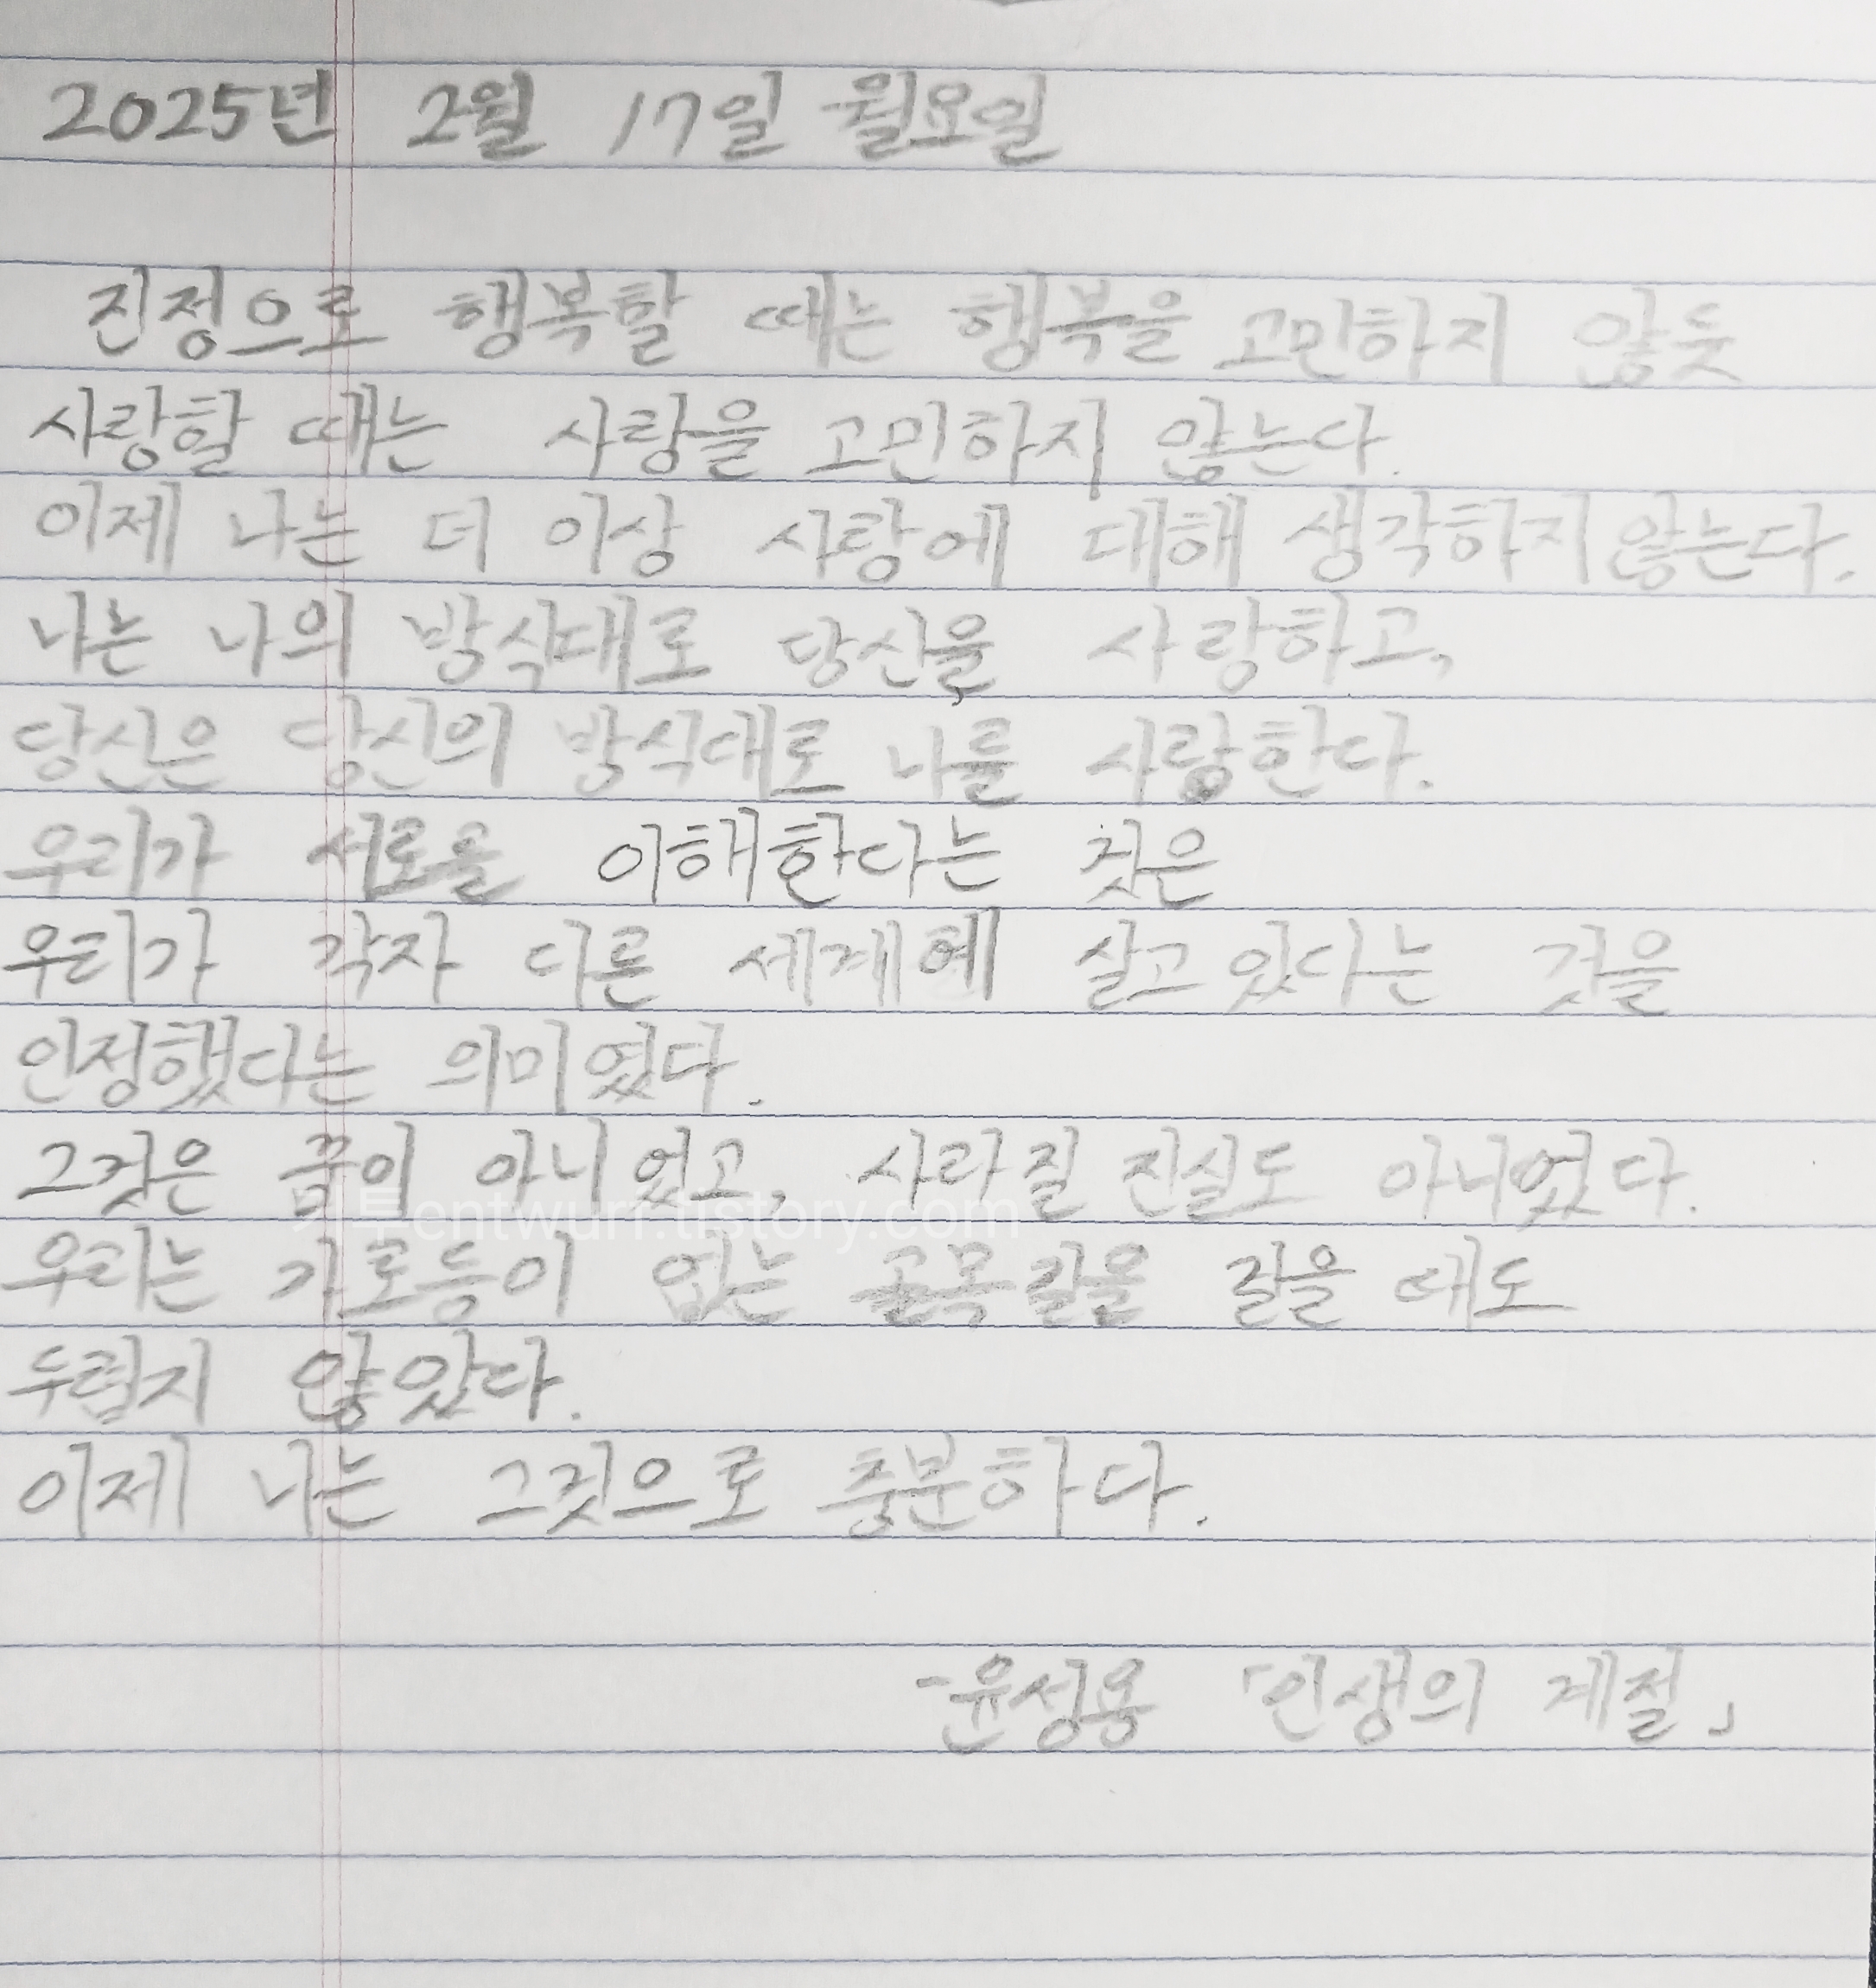 2025년 2월 17일 월요일
진정으로 행복할 때는 행복을 고민하지 않듯
사랑할 때는 사랑을 고민하지 않는다.
이제 나는 더 이상 사랑에 대해 생각하지 않는다.
나는 나의 방식대로 당신을 사랑하고,
당신은 당신의 방식대로 나를 사랑한다.
우리가 서로를 이해한다는 것은
우리가 각자 다른 세계에 살고 있다는 것을
인정했다는 의미였다.
그것은 꿈이 아니었고, 사라질 진실도 아니었다.
entwurf.tistory.com
우리는 가로등이 없는 골목길을 걸을 때도
두렵지 않았다.
이제 나는 그것으로 충분하다.
-윤성용 「인생의 계절」